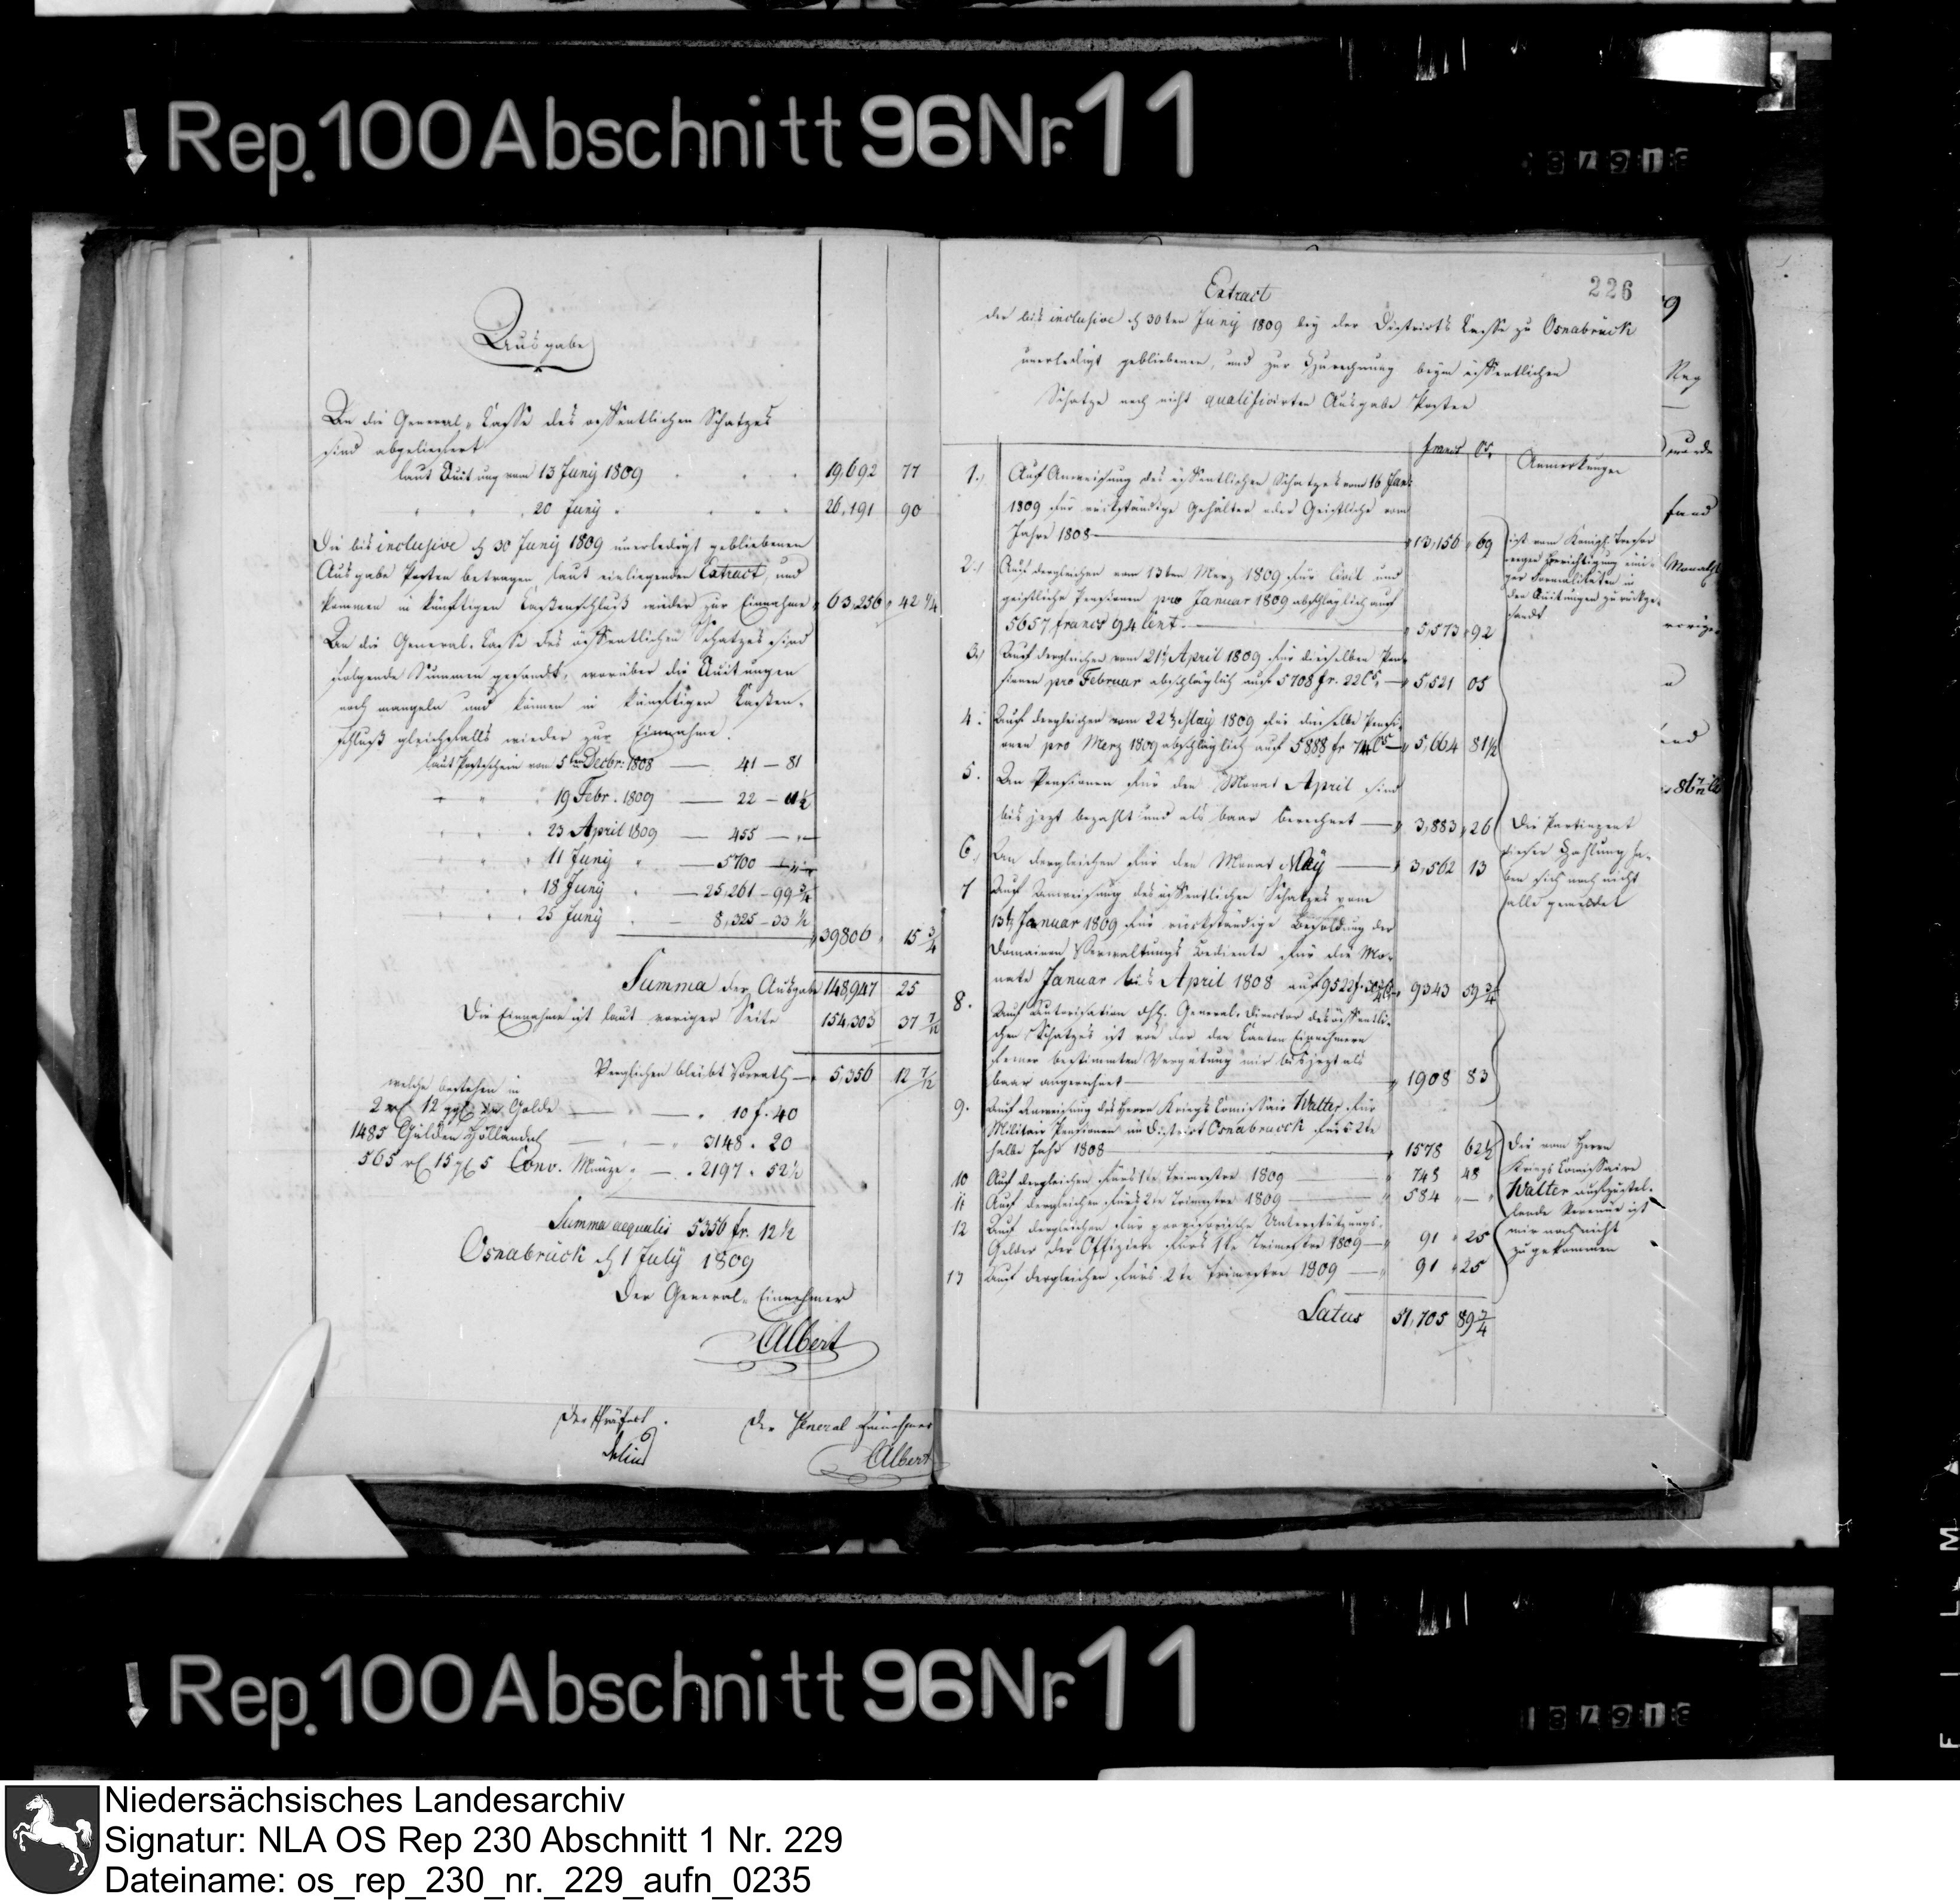 Rep. 100 Abschnitt 96 Nr. 11
Ausgabe
An die General-Casse des oeffentlichen Schatzes
sind abgeliefert
laut Quitung vom 13 Juny 1809 19,692 77
20 Juny 26,191 90
Die bis inclusive d 30 Juny 1809 unerledigt gebliebenen
Ausgabe Posten betragen, laut einliegenden Extract, und
kommen in künftigen Cassenschluß wieder zur Einnahme 63,256 42 1/4
An die General-Casse des öffentlichen Schatzes sind
folgende Summen gesandt, worüber die Quitungen
noch mangeln und können im künftigen Cassen-
schluß gleichfalls wieder zur Einnahme.
laut Postschein von 5ten Decbr: 1808 — 41 — 81
19 Febr. 1809 — 22 —
23 April 1809 — 455 —
11 Juny — 5700 —
18 Juny — 25,261 — 99 3/4
25 Juny — 8,325 — 33 1/2
39806 15 3/4
Summa der Ausgabe 148,947 25
Die Einnahme ist laut voriger Seite 154,303 37 7/12
Verglichen bleibt Vorrath — 5,356 12 7/12
welche bestehen in
2 rl 12 ggl in Golde — 10 f. 40
1485 Gulden Holländisch — 3148. 20
565 rl 15 gl 5 Conv. Münze — 2197. 52 1/2
Summa aequalis 5356 fr. 12 1/2
Osnabrück d 1 July 1809
Der General-Einnehmer
Albert
Der Präfect. Der General Einnehmer
Albert
226
Extract
der bis inclusive d 30ten Juny 1809 bey der Districts Casse zu Osnabrück
unerledigt gebliebenen, und zur Berechnung beym öffentlichen
Schatze noch nicht qualificirten Ausgabe Posten
francs Cs. Anmerkungen
1.) Auf Anweisung des öffentlichen Schatzes vom 16 Jan:
1809 für rückständige Gehälter der Geistliche vom
Jahre 1808 — 13,156 69
ist vom Königl. Tresor
wegen Berichtigung eini-
ger Formalitäten in
den Quitungen zurückge-
sandt
2.) Auf dergleichen vom 13ten Merz 1809 für Civil und
geistliche Pensionen pro Januar 1809 abschläglich auf
5657 francs 94 Cent. — 5,573 92
3.) Auf dergleichen vom 21t April 1809 für dieselben Pen-
sionen pro Februar abschläglich auf 5708 fr. 22 Cs. — 5,521 05
4. Auf dergleichen vom 22t May 1809 für dieselbe Pensi-
onen pro Merz 1809 abschläglich auf 5888 fr 74 Cs — 5,664 81 1/2
5. An Pensionen für den Monat April sind
bis jezt bezahlt und als baar berechnet — 3,883 26
6.) An dergleichen für den Monat May — 3,562 13
Die Partinzent
dieser Zahlung ha-
ben sich noch nicht
alle gemeldet
7 Auf Anweisung des öffentlichen Schatzes vom
13t Januar 1809 für rückständige Besoldung der
Domainen Verwaltungs Bediente für die Mo-
nate Januar bis April 1808 auf 9522 f. — 9343 59 3/4
8. Auf Autorisation des H. General-Director des öffentli-
chen Schatzes ist von der den Canton Einnehmern
ferner bestimmten Vergütung mir bis jezt als
baar angerechnet — 1908 83
9. Auf Anweisung des Herrn Kriegs Comissair Walter für
Militair Pensionen im District Osnabrück fürs 2te
halbe Jahr 1808 — 1578 62 1/2
10 Auf dergleichen fürs 1te Trimestre 1809 — 743 48
11 Auf dergleichen fürs 2te Trimestre 1809 — 584 —
12 Auf dergleichen für provisorische Unterstützungs-
Gelder der Offiziere fürs 1te Trimestre 1809 — 91 25
13 Auf dergleichen fürs 2te Trimestre 1809 — 91 25
Die vom Herrn
Kriegs Comissaire
Walter auszustel-
lende Revenue ist
mir noch nicht
zugekommen
Latus 51,705 89 3/4
Rep. 100 Abschnitt 96 Nr. 11
Niedersächsisches Landesarchiv
Signatur: NLA OS Rep 230 Abschnitt 1 Nr. 229
Dateiname: os_rep_230_nr._229_aufn_0235